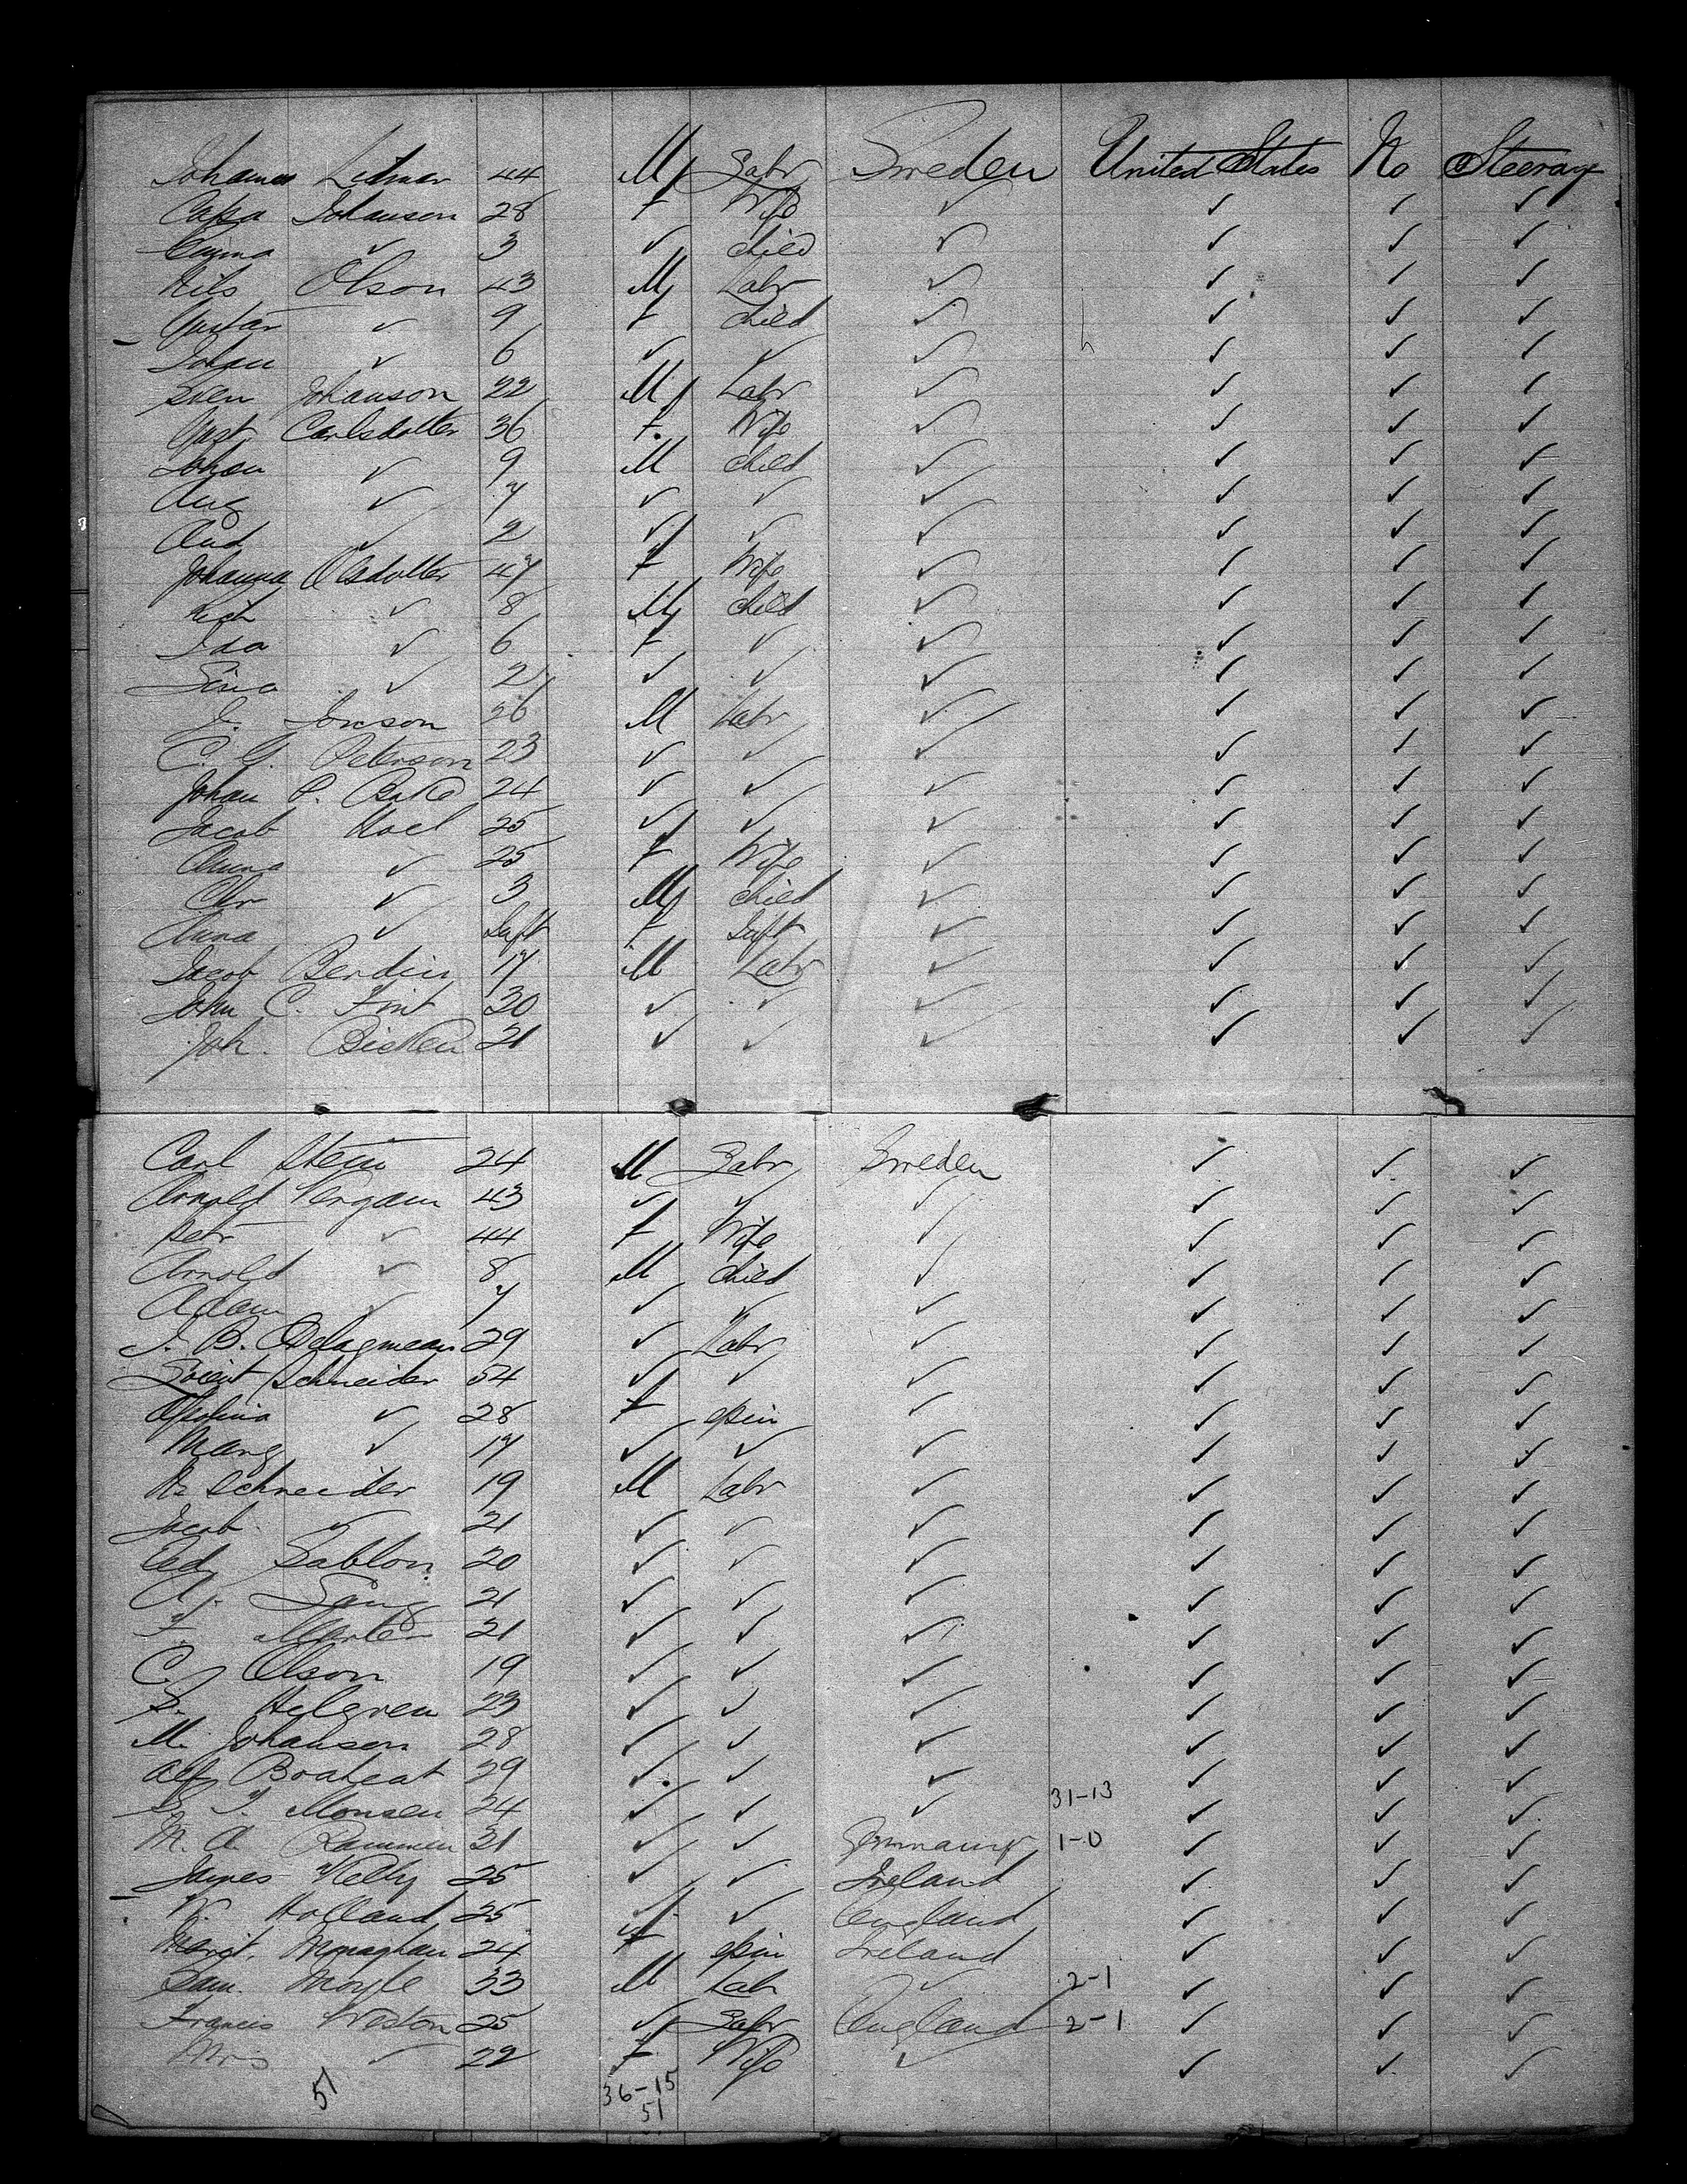 Johannes Litmar 44 M Labr Sweden United States No Steerage
Cajsa Johanson 28 F Wife ✓ ✓ ✓ ✓
✓ 3 ✓ child ✓ ✓ ✓ ✓
Nils Olson 43 M Labr ✓ ✓ ✓ ✓
Gustav ✓ 9 F child ✓ ✓ ✓ ✓
Johan ✓ 6 ✓ ✓ ✓ ✓ ✓ ✓
Sven Johanson 22 M Labr ✓ ✓ ✓ ✓
Gust Carlsdotter 36 F Wife ✓ ✓ ✓ ✓
Johan ✓ 9 M child ✓ ✓ ✓ ✓
Aug ✓ 7 ✓ ✓ ✓ ✓ ✓ ✓
And ✓ 2 ✓ ✓ ✓ ✓ ✓ ✓
Johanna Olsdotter 47 F Wife ✓ ✓ ✓ ✓
✓ 8 M child ✓ ✓ ✓ ✓
Ida ✓ 6 F ✓ ✓ ✓ ✓ ✓
Sina ✓ 2 ✓ ✓ ✓ ✓ ✓ ✓
J. Jonson 26 M Labr ✓ ✓ ✓ ✓
C. G. Peterson 23 ✓ ✓ ✓ ✓ ✓ ✓
Johan P. 24 ✓ ✓ ✓ ✓ ✓ ✓
Jacob Hoel 25 ✓ ✓ ✓ ✓ ✓ ✓
Anna ✓ 25 F Wife ✓ ✓ ✓ ✓
✓ 3 M child ✓ ✓ ✓ ✓
Anna ✓ Inft F Inft ✓ ✓ ✓ ✓
Jacob Berdin 17 M Labr ✓ ✓ ✓ ✓
John C. Font 30 ✓ ✓ ✓ ✓ ✓ ✓
Joh. 21 ✓ ✓ ✓ ✓ ✓ ✓
Carl Stein 24 M Labr Sweden ✓ ✓ ✓
Arnold Vergam 43 ✓ ✓ ✓ ✓ ✓ ✓
Petr ✓ 44 F Wife ✓ ✓ ✓ ✓
Arnold ✓ 8 M child ✓ ✓ ✓ ✓
Adam ✓ 7 ✓ ✓ ✓ ✓ ✓ ✓
J. B. 29 ✓ Labr ✓ ✓ ✓ ✓
Schneider 54 ✓ ✓ ✓ ✓ ✓ ✓
Apolina ✓ 28 F spin ✓ ✓ ✓ ✓
Marg ✓ 17 ✓ ✓ ✓ ✓ ✓ ✓
Schneider 19 M Labr ✓ ✓ ✓ ✓
Jacob ✓ 21 ✓ ✓ ✓ ✓ ✓ ✓
Ed Sablon 20 ✓ ✓ ✓ ✓ ✓ ✓
A. Sang 21 ✓ ✓ ✓ ✓ ✓ ✓
F. 21 ✓ ✓ ✓ ✓ ✓ ✓
C. Olson 19 ✓ ✓ ✓ ✓ ✓ ✓
S. Helgren 23 ✓ ✓ ✓ ✓ ✓ ✓
M. Johansen 28 ✓ ✓ ✓ ✓ ✓ ✓
Alf Boaheat 29 ✓ ✓ ✓ ✓ ✓ ✓
S. T. Monsen 24 ✓ ✓ ✓ 31-13 ✓ ✓ ✓
M. A. Rammen 31 ✓ ✓ Germany 1-0 ✓ ✓ ✓
James Kelly 25 ✓ ✓ Ireland ✓ ✓ ✓
W. Holland 25 ✓ ✓ England ✓ ✓ ✓
Margt. Monaghan 24 F spin Ireland ✓ ✓ ✓
Sam. Moyle 33 M Labr ✓ 2-1 ✓ ✓ ✓
Francis Weston 25 ✓ Labr England 2-1 ✓ ✓ ✓
Mrs ✓ 22 F Wife ✓ ✓ ✓ ✓
51 36-15
51